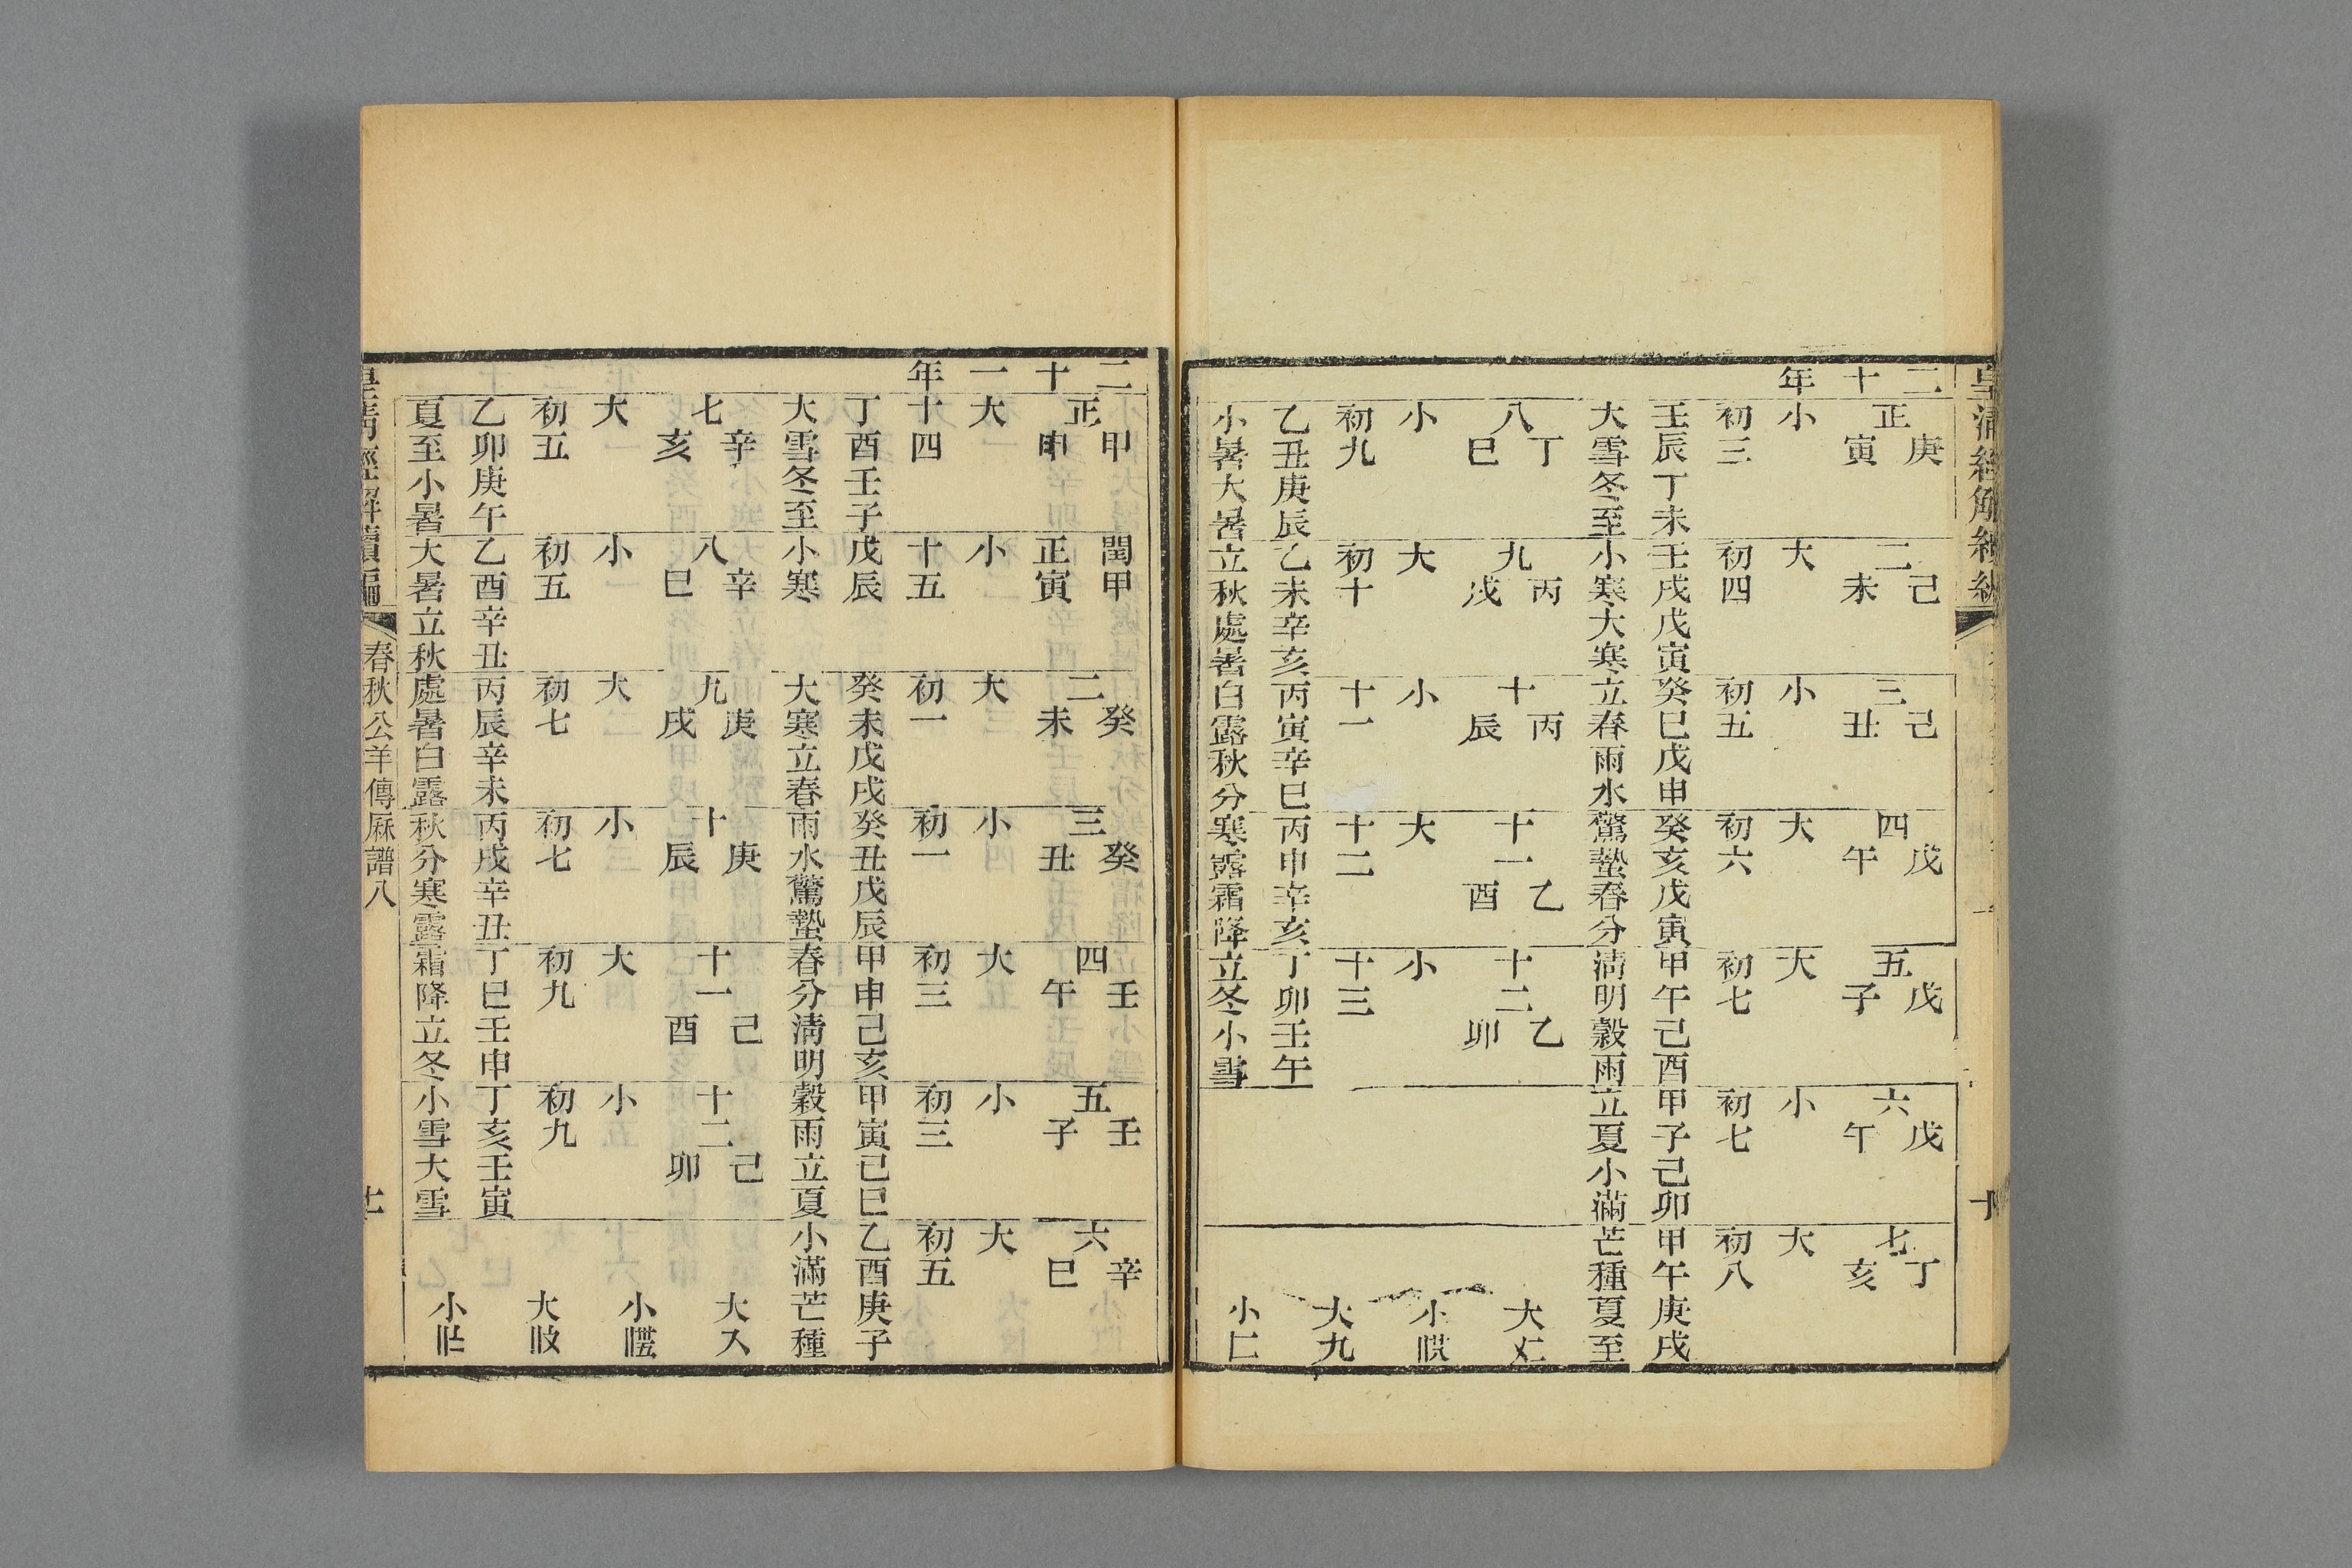 皇清經解續
十
二十年
正 庚寅 小 初三 壬辰丁未 大雪冬至
二 己未 大 初四 壬戌戊寅 小寒大寒
三 己丑 小 初五 癸巳戊申 立春雨水
四 戊午 大 初六 癸亥戊寅 驚蟄春分
五 戊子 大 初七 甲午己酉 清明穀雨
六 戊午 小 初七 甲子己卯 立夏小滿
七 丁亥 大 初八 甲午庚戌 芒種夏至
八 丁巳 小 初九 乙丑庚辰 小暑大暑
九 丙戌 大 初十 乙未辛亥 立秋處暑
十 丙辰 小 十一 丙寅辛巳 白露秋分
十一 乙酉 大 十二 丙申辛亥 寒露霜降
十二 乙卯 小 十三 丁卯壬午 立冬小雪
大
小
大九
小
二十一年
正 甲申 大 十四 丁酉壬子 大雪冬至
閏正 甲寅 小 十五 戊辰 小寒
二 癸未 大 初一 癸未戊戌 大寒立春
三 癸丑 小 初一 癸丑戊辰 雨水驚蟄
四 壬午 大 初三 甲申己亥 春分清明
五 壬子 小 初三 甲寅己巳 穀雨立夏
六 辛巳 大 初五 乙酉庚子 小滿芒種
七 辛亥 大 初五 乙卯庚午 夏至小暑
八 辛巳 小 初五 乙酉辛丑 大暑立秋
九 庚戌 大 初七 丙辰辛未 處暑白露
十 庚辰 小 初七 丙戌辛丑 秋分寒露
十一 己酉 大 初九 丁巳壬申 霜降立冬
十二 己卯 小 初九 丁亥壬寅 小雪大雪
大
小
大
小
皇清經解續編
春秋公羊傳厤譜八